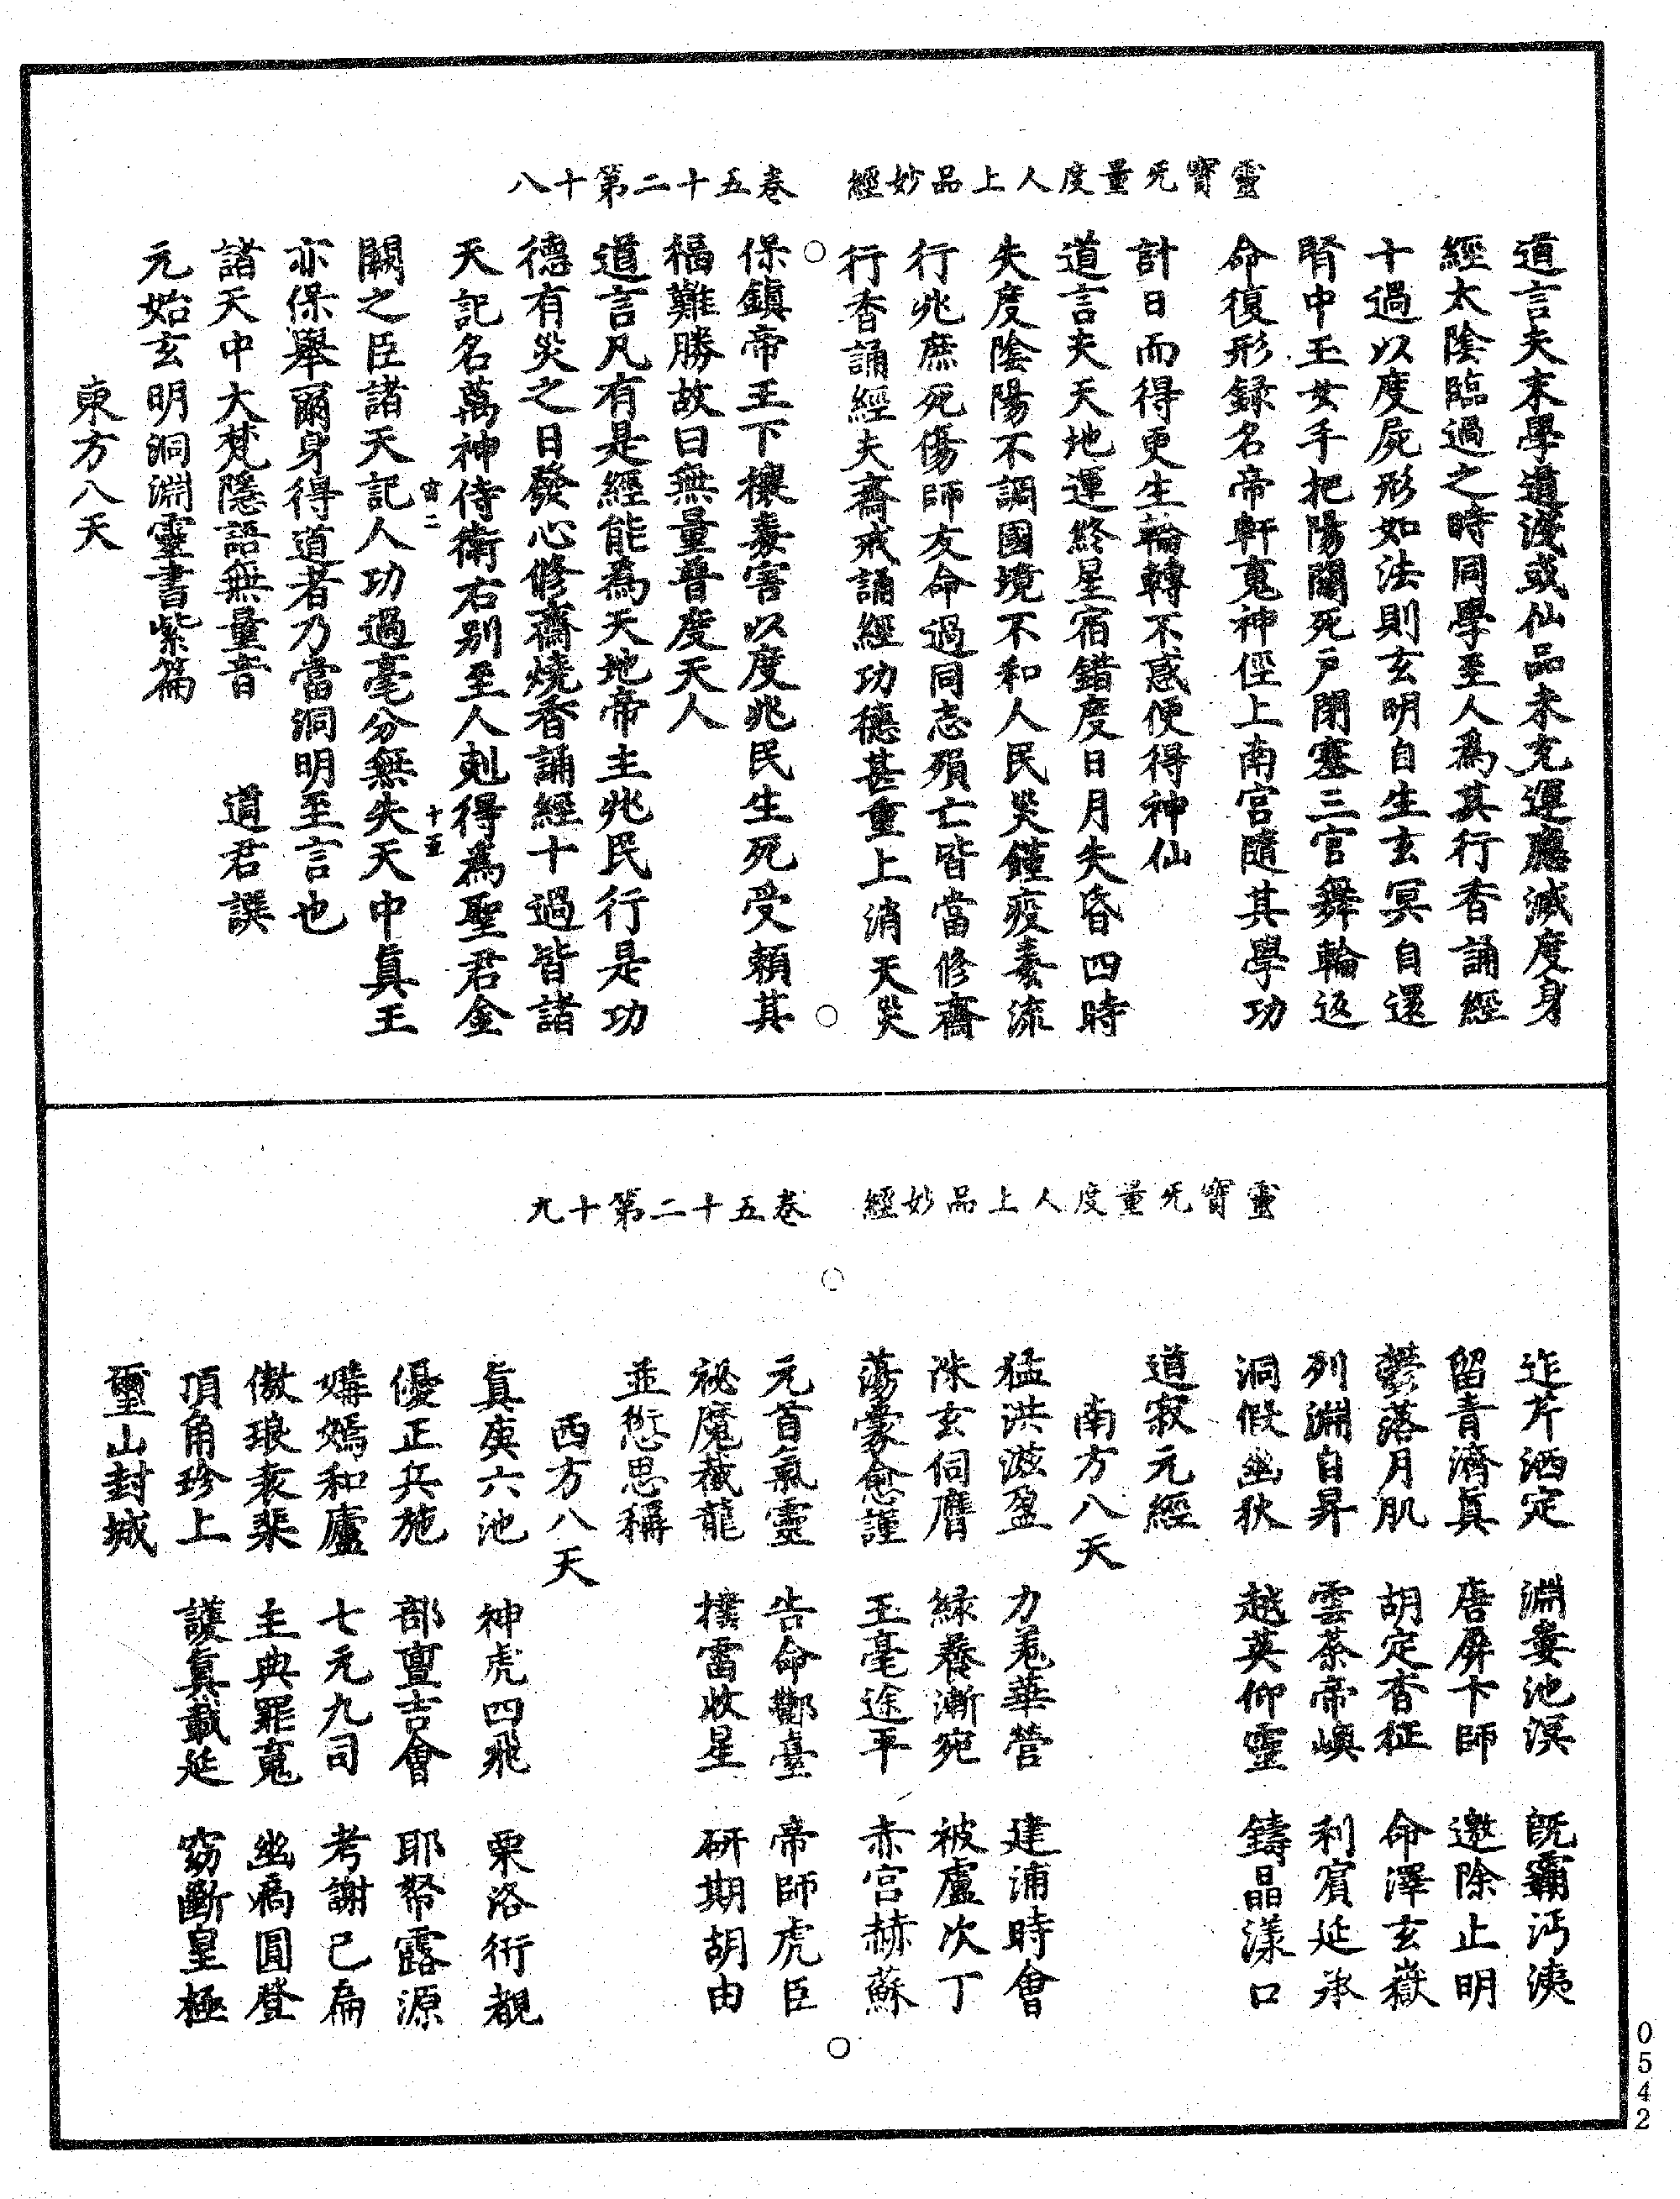 靈寶无量度人上品妙經　卷五十二第十八
道言夫末學道淺或仙品未充運應滅度身
經太陰臨過之時同學至人為其行香誦經
十過以度屍形如法則玄明自生玄冥自還
腎中玉女手把陽關死戶閉塞三官舞輪返
命復形錄名帝軒魂神徑上南宮隨其學功
計日而得更生輪轉不惑便得神仙
道言夫天地運終星宿錯度日月失昏四時
失度陰陽不調國境不和人民災饉疫毒流
行兆庶死傷師友命過同志殞亡皆當修齋
行香誦經夫齋戒誦經功德甚重上消天災
保鎮帝王下禳毒害以度兆民生死受賴其
福難勝故曰無量普度天人
道言凡有是經能為天地帝主兆民行是功
德有災之日發心修齋燒香誦經十過皆諸
天記名萬神侍衛右別至人剋得為聖君金
闕之臣諸天記人功過毫分無失天中真王
亦保舉爾身得道者乃當洞明至言也
諸天中大梵隱語無量音　　道君譔
元始玄明洞淵靈書紫篇
東方八天
靈寶无量度人上品妙經　卷五十二第十九
迮芹洒定　淵婁池溟　既霸沔洟
留青濟真　唐屏卞師　邀除止明
鬱落月肌　胡定杳征　命澤玄嶽
列淵自昇　雲荼帝嶼　利賓延承
洞假幽狄　越英仰靈　鑄晶漾口
道寂元經
南方八天
猛洪滋盈　力羗華營　建浦時會
洙玄伺膺　綠養漸宛　被盧次丁
蕩蒙愈謹　玉毫途平　赤宮赫蘇
元首氣靈　告命酆臺　帝師虎臣
祕魔蕺龍　撲雷收星　研期胡由
並愆思稱
西方八天
真庚六池　神虎四飛　栗洛衍覩
優正兵施　部亶吉會　耶帑露源
媾嫣和廬　七元九司　考謝已扁
傲琅袁裴　主典罪魂　幽癘圓登
項角珍上　護真載延　窈斷皇極
璽山封城
0542